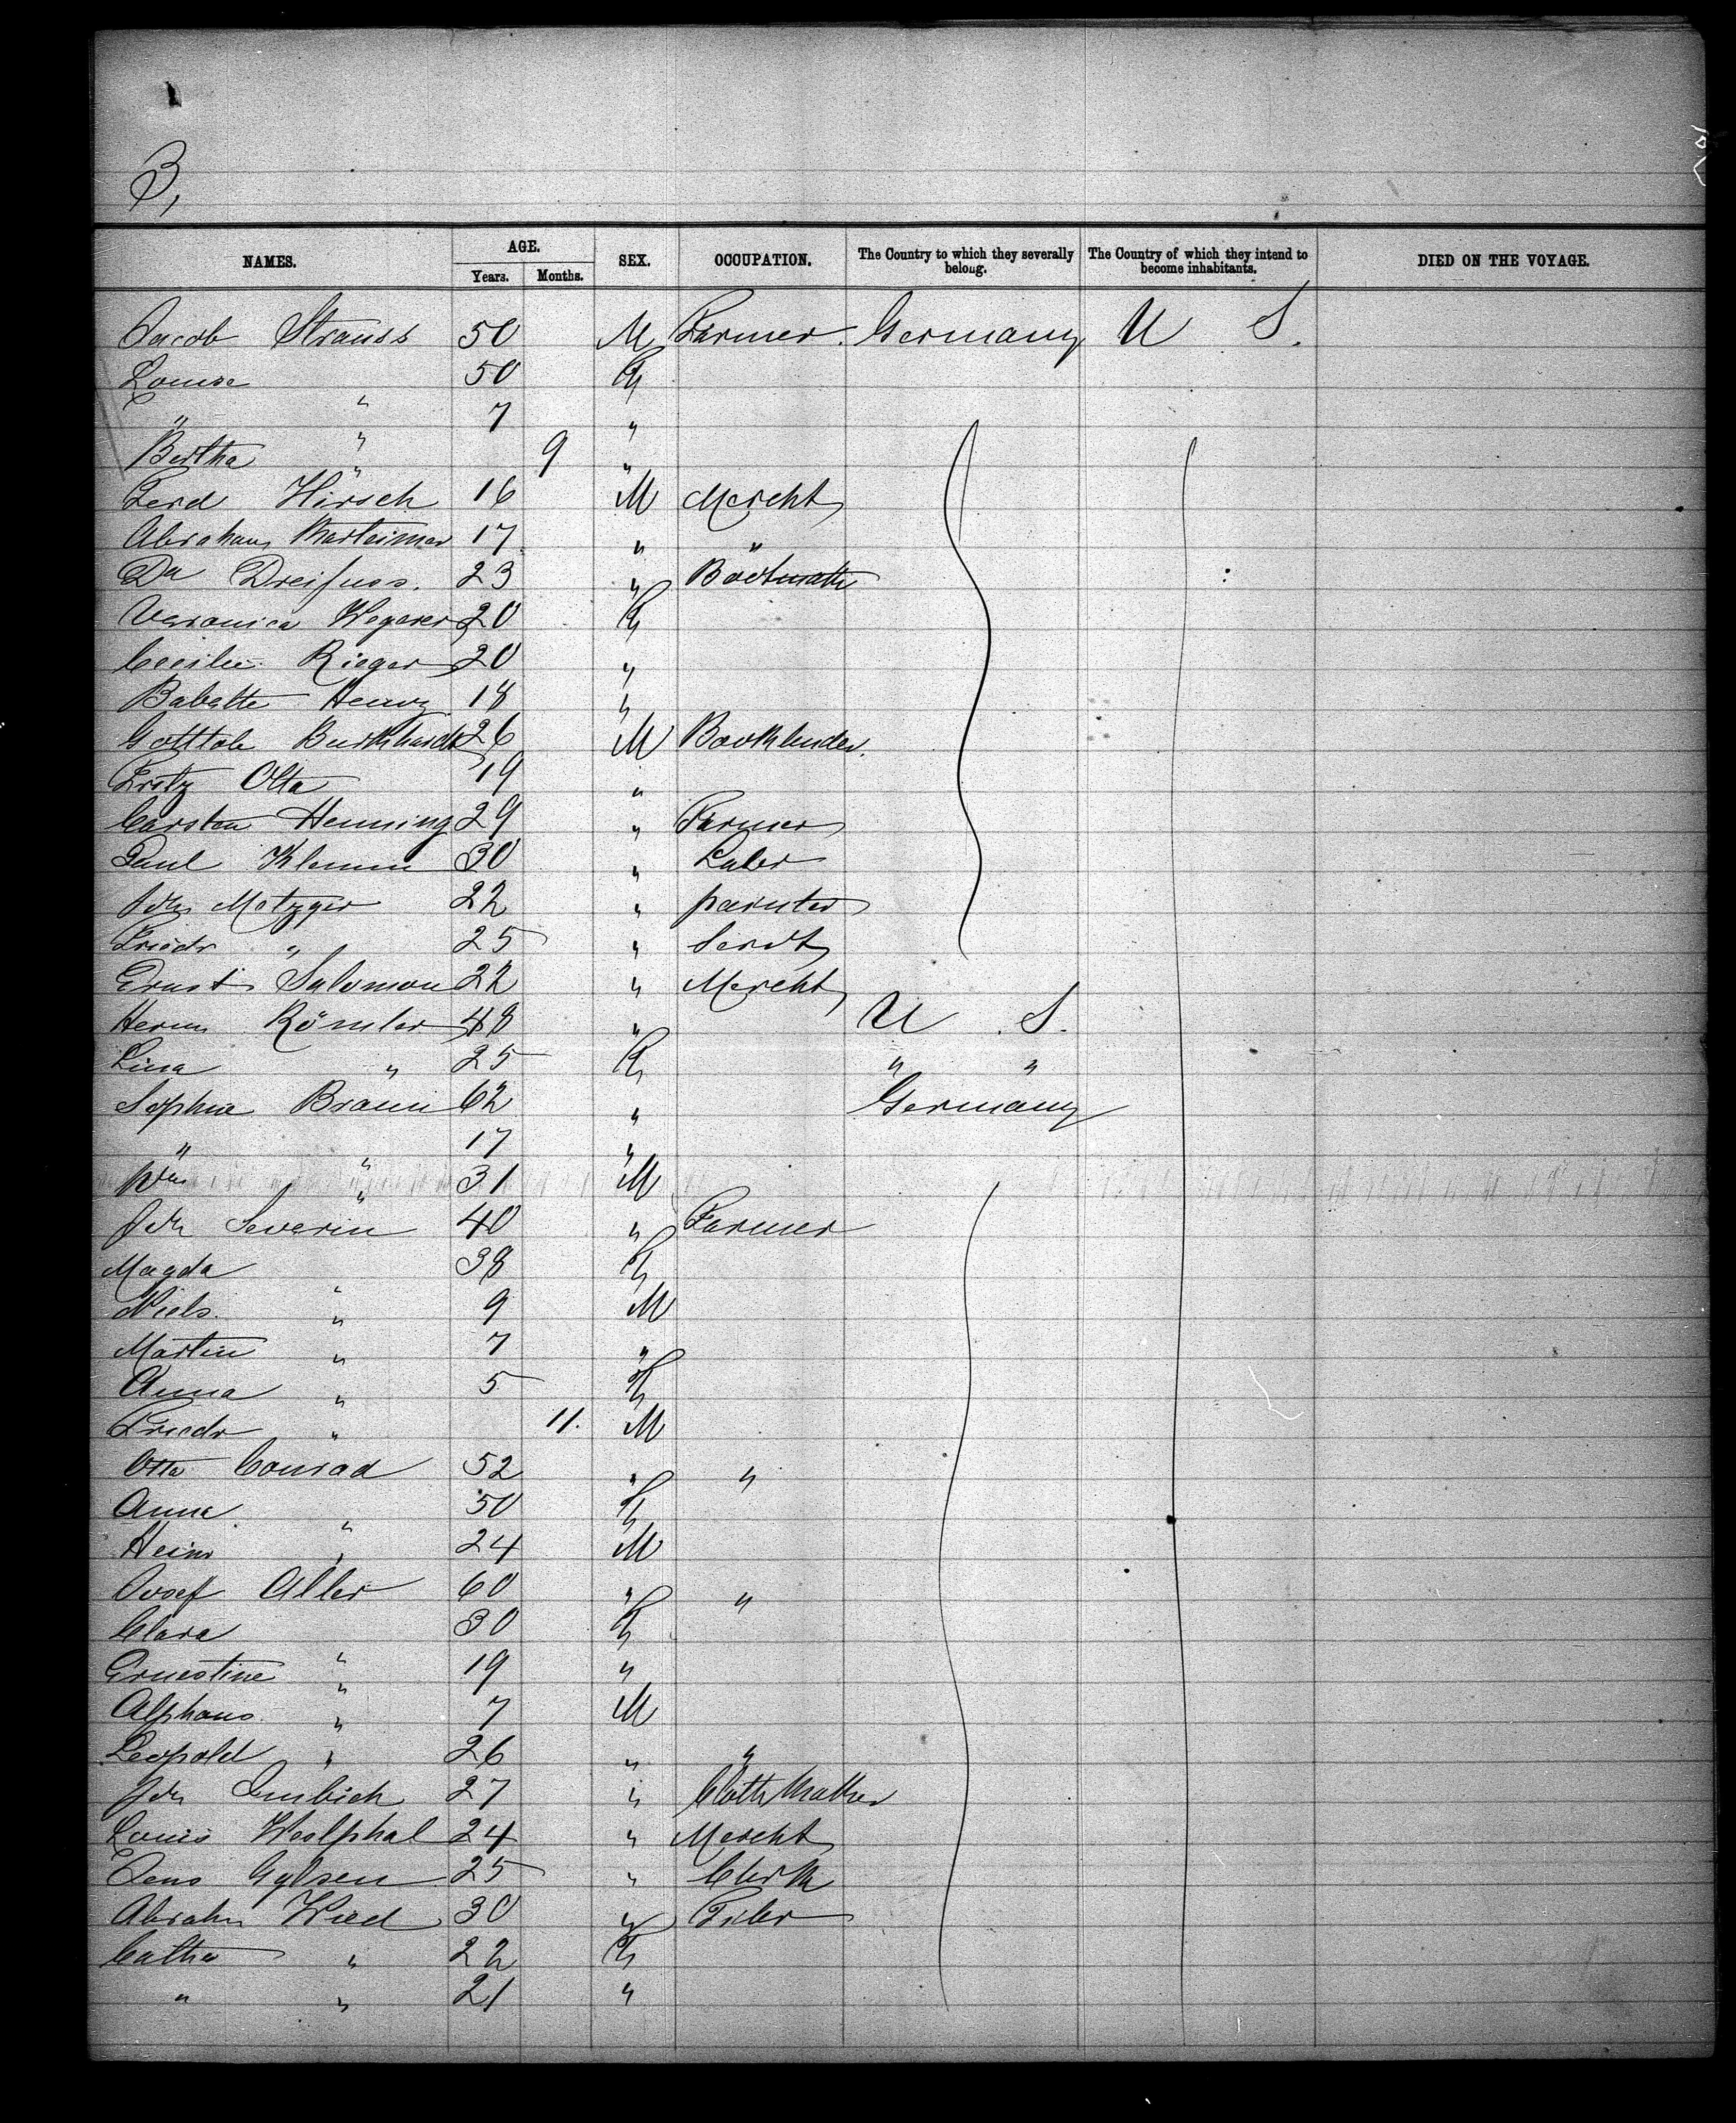 3,
NAMES. AGE. SEX. OCCUPATION. The Country to which they severally belong. The Country of which they intend to become inhabitants. DIED ON THE VOYAGE.
Years. Months.
Jacob Strauss 50 M Farmer. Germany U S.
Louise " 50 F
" " 7 "
Bertha " 9 "
Ferd Hirsch 16 M Mercht
Abraham 17 " "
Da Dreifuss. 23 "
Veronica Wegerer 20 F
Cecilie Rieger 20 "
Babette Henry 18 "
Gottlob Burkhardt 26 M Bookbinder.
Fritz Otta 19 "
Carsten Henning 29 " Farmer
Paul Klemm 30 " Labr
Joh Metzger 22 " painter
Friedr " 25 " Servt
Ernst Salomon 22 " Mercht
Herm Römler 48 " U. S.
Lina " 25 F " "
Sophie Braun 62 " Germany
" " 17 "
" 31 M
Joh Severin 40 " Farmer
Magda " 38 F
Niels. " 9 M
Martin " 7 "
Anna " 5 F
Friedr " 11. M
Otto Conrad 52 " "
Anna " 50 F
Heinr " 24 M
Josef Aller 60 " "
Clara " 30 F
Ernestine " 19 "
Alphons " 7 M
Leopold " 26 " "
Joh 27 "
Louis Westphal 24 " Mercht
Jens Gylsen 25 " Clerk
Abrahm Wied 30 "
Cathe " 22 F
" " 21 "